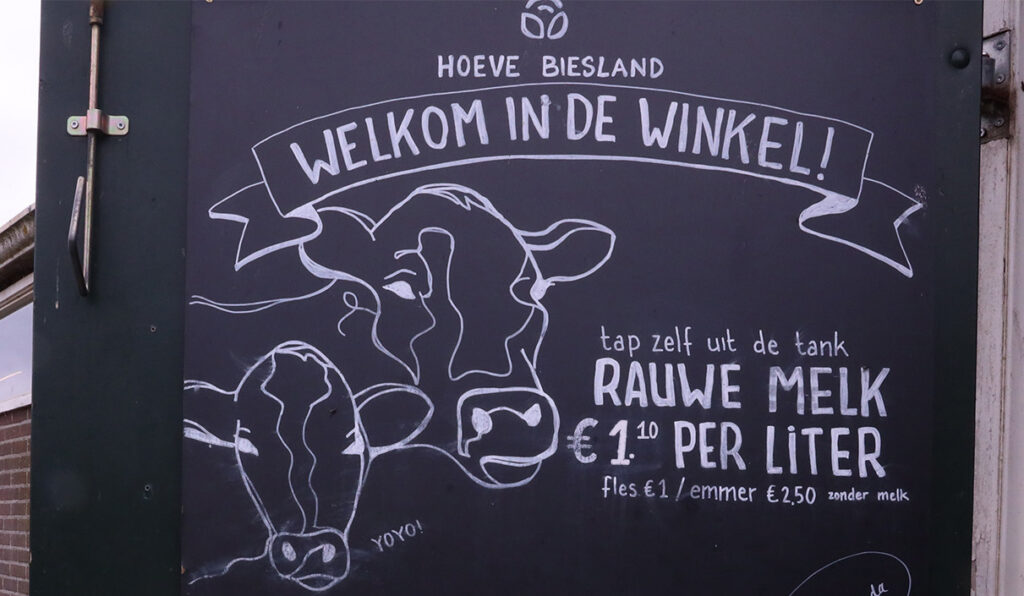 HOEVE BIESLAND
WELKOM IN DE WINKEL!
tap zelf uit de tank
RAUWE MELK
€1.10 PER LITER
fles €1 / emmer €2,50 zonder melk
YOYO!
da